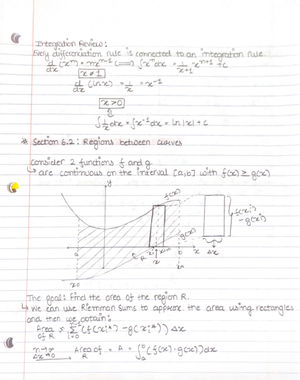 Integration Review:
Every differentiation rule is connected to an integration rule.
d/dx (xⁿ) = nxⁿ⁻¹ ⟺ ∫xⁿdx = 1/n+1 xⁿ⁺¹ + C
n ≠ 1
d/dx (ln x) = 1/x = x⁻¹
x > 0
∫ 1/x dx = ∫x⁻¹ dx = ln|x| + C
* Section 6.2: Regions between curves
Consider 2 functions f and g.
↳ are continuous on the interval [a,b] with f(x) ≥ g(x)
y
f(x)
g(x)
R
a
b
x
Δx
f(xᵢ*)
- g(xᵢ*)
x0
xn
The goal: Find the area of the region R.
↳ We can use Riemman Sums to approx. the area using rectangles
and then we obtain:
Area of R ≈ Σ (f(xᵢ*) - g(xᵢ*)) Δx
n→∞
Δx→0
Area of R = A = ∫ₐᵇ (f(x) - g(x)) dx